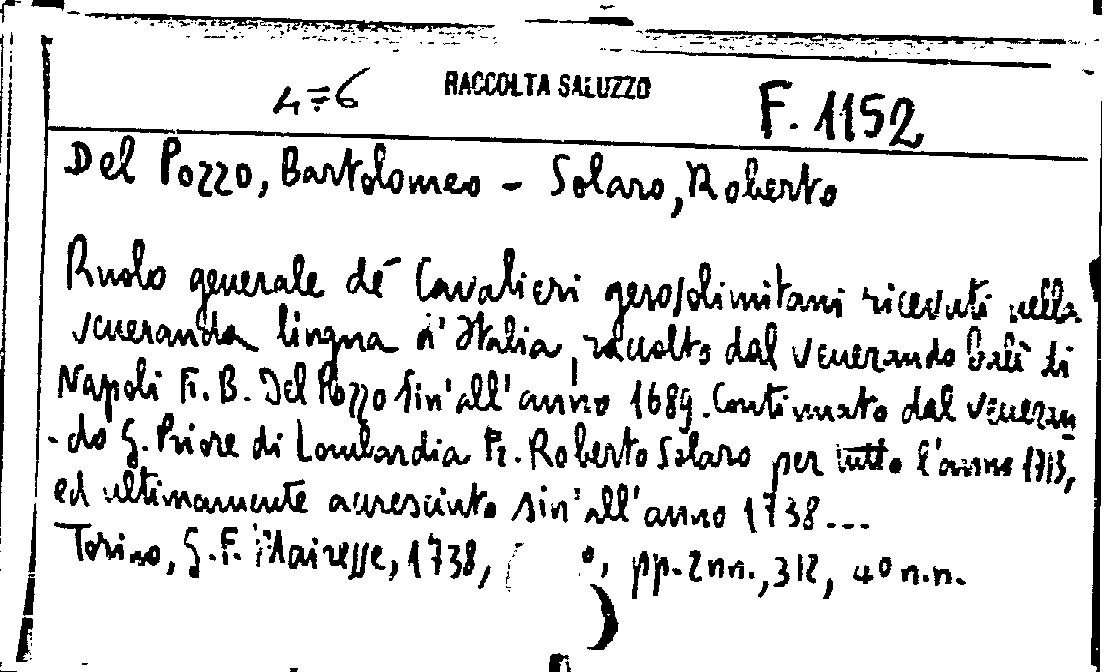 4=6 RACCOLTA SALUZZO F. 1152
Del Pozzo, Bartolomeo - Solaro, Roberto
Ruolo generale de' Cavalieri gerosolimitani ricevuti nella
veneranda lingua d'Italia, raccolto dal venerando balì di
Napoli Fr. B. Del Pozzo sin'all'anno 1689. Continuato dal veneran
-do G. Priore di Lombardia Fr. Roberto Solaro per tutto l'anno 1713,
ed ultimamente accresciuto sin'all'anno 1738...
Torino, G.F. Mairesse, 1738, °, pp. 2 nn., 312, 40 n.n.